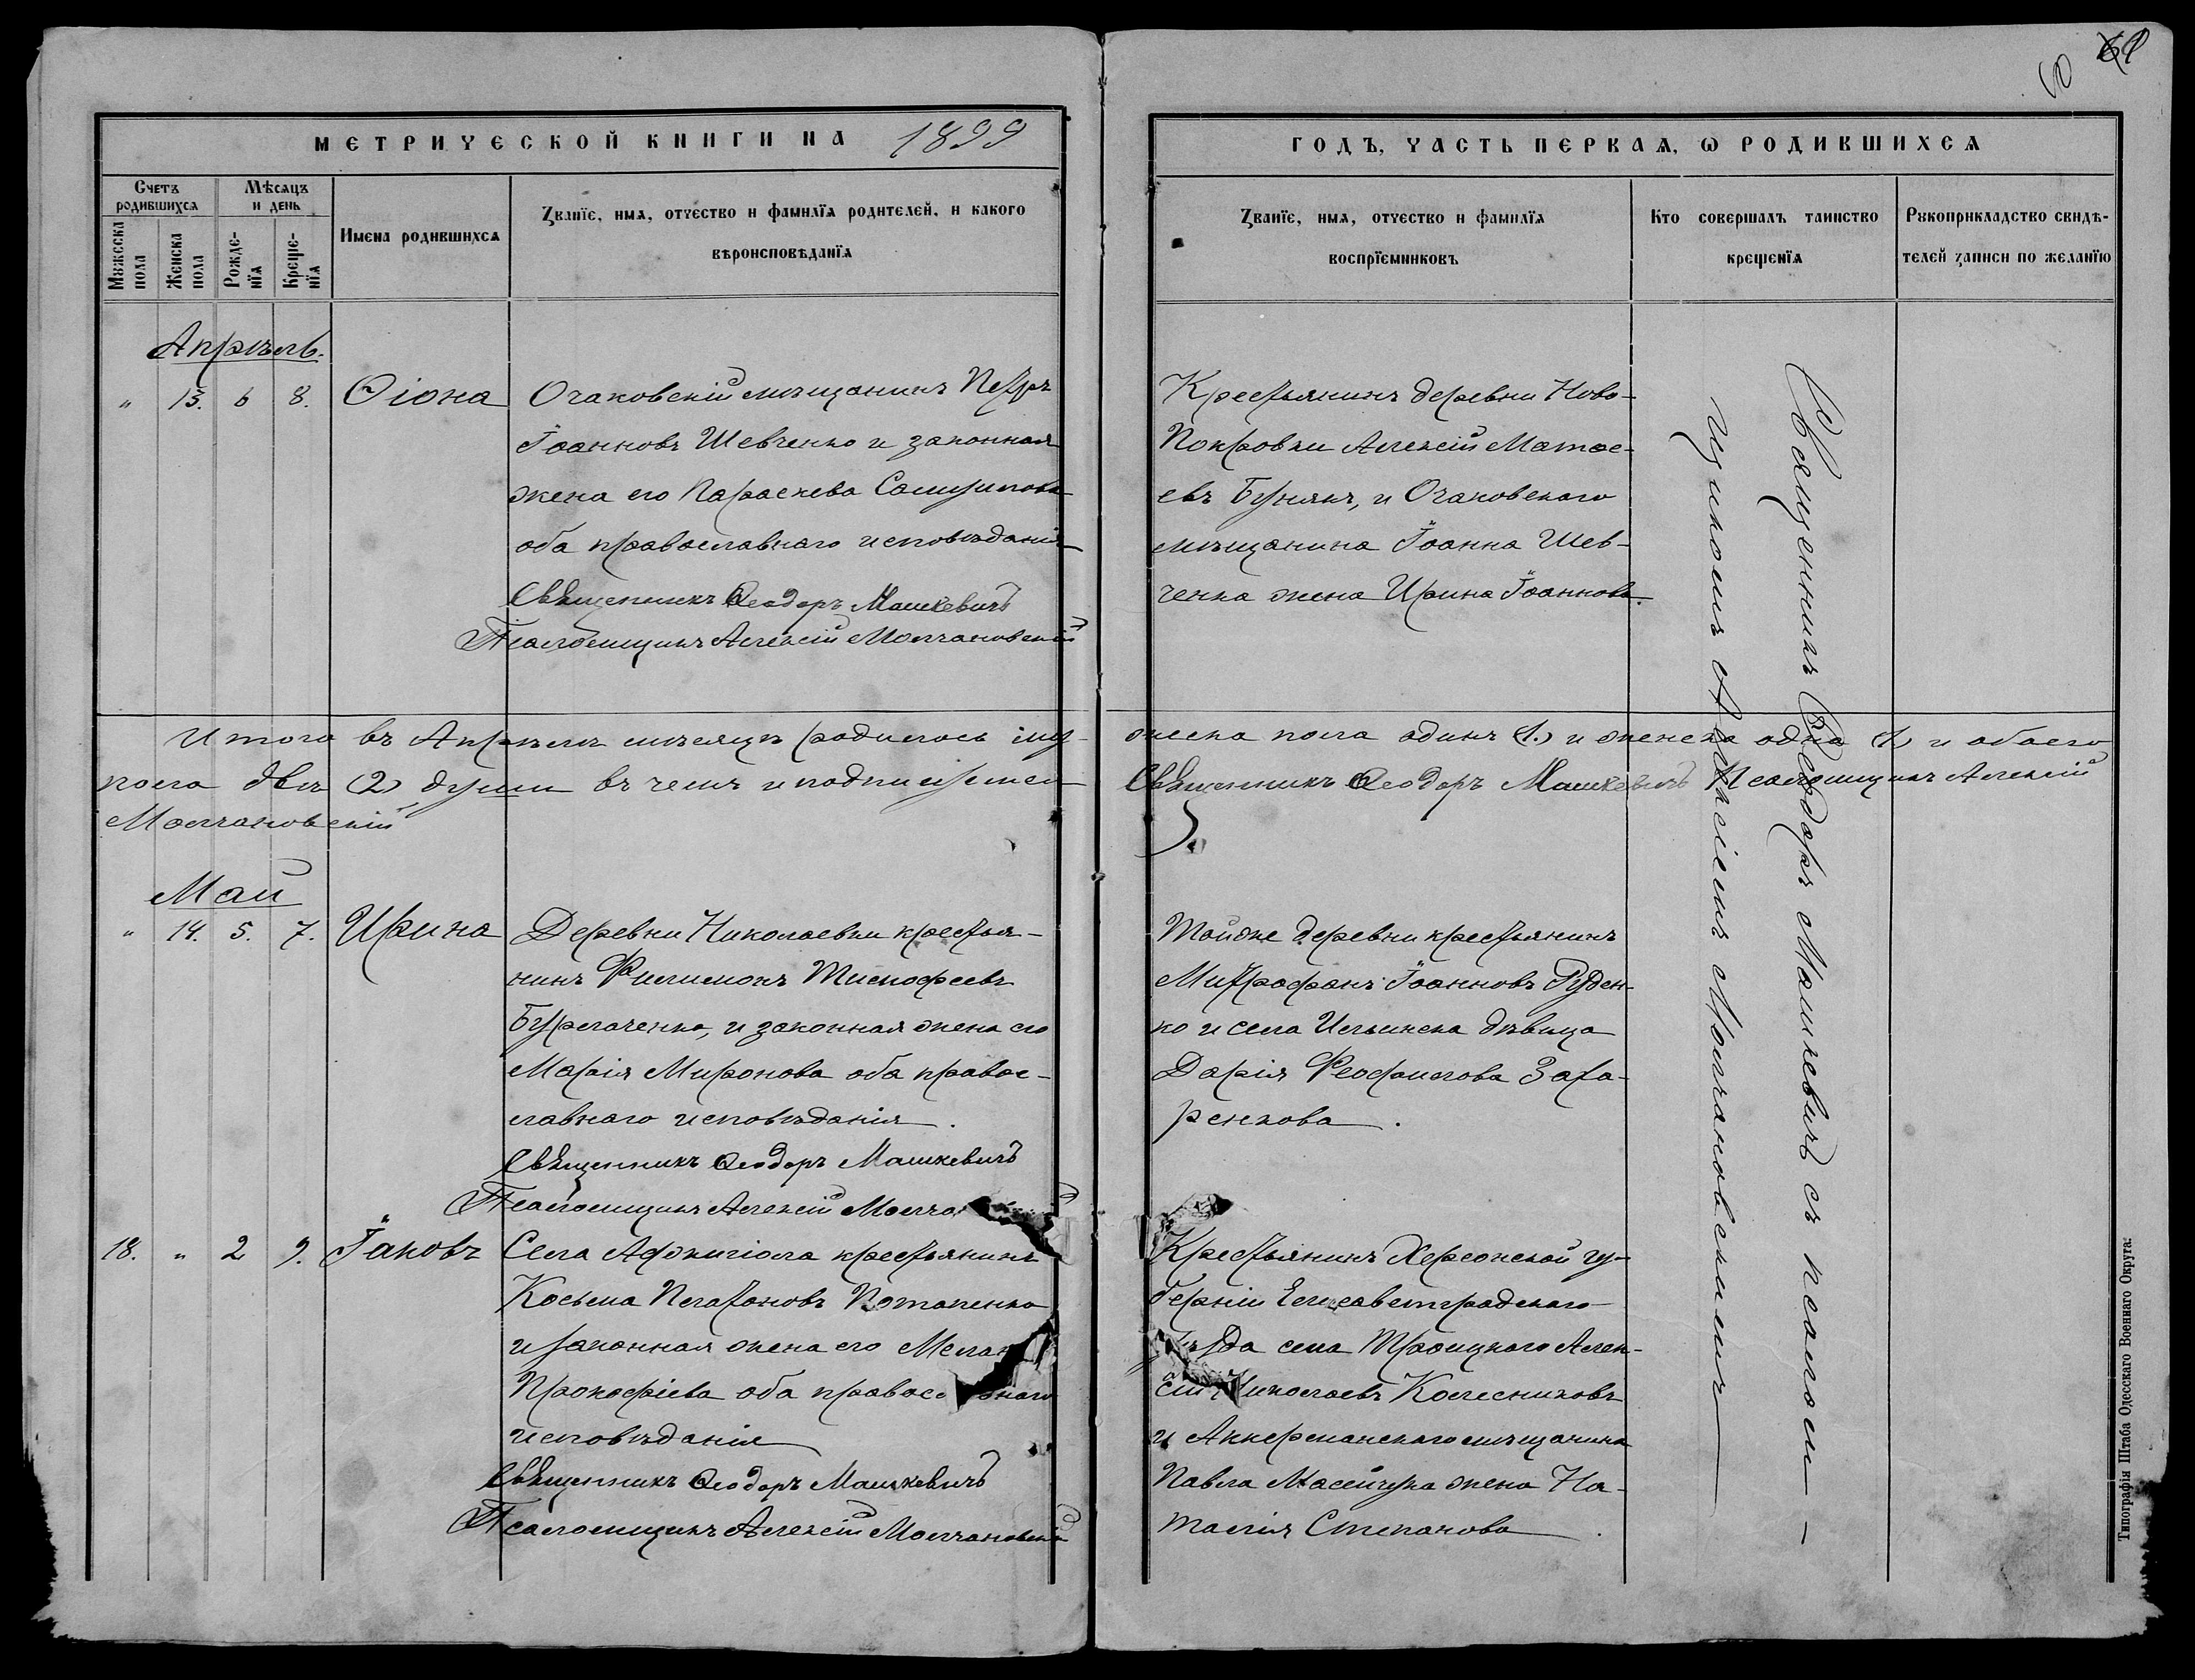 61
60
МЕТРИЧЕСКОЙ КНИГИ НА 1899
ГОДЪ, ЧАСТЬ ПЕРВАѦ, Ѡ РОДИВШИХСѦ
Счетъ родившихсѧ
Мѣсѧцъ и день
Имена родившихсѧ
Званїе, имѧ, отчество и фамилїѧ родителей, и какого
вѣроисповѣданїѧ
Мужеска пола
Женска пола
Рожде-нїѧ
Креще-нїѧ
Званїе, имѧ, отчество и фамилїѧ
воспрїемниковъ
Кто совершалъ таинство
крещенїѧ
Рукоприкладство свидѣ-
телей записи по желанїю
Апрѣль.
" 13. 6 8. Ѳіона
Очаковскій мѣщанинъ Петръ
Іоанновъ Шевченко и законная
жена его Параскева
оба православнаго исповѣданія
Священникъ Ѳеодоръ Машкевичъ
Псаломщикъ Алексій Молчановскій
Крестьянинъ деревни Ново-
Покровки Алексій Матѳе-
евъ Бунякъ, и Очаковскаго
мѣщанина Іоанна Шев-
ченка жена Ирина Іоаннова.
Священникъ Ѳеодоръ Машкевичъ съ псалом-
щикомъ Алексіемъ Молчановскимъ
Итого въ Апрѣлѣ мѣсяцѣ родилось муж-
еска пола одинъ (1.) и женска одна (1.) и обоего
пола двѣ (2) души въ чемъ и подписуемся
Священникъ Ѳеодоръ Машкевичъ Псаломщикъ Алексій
Молчановскій
Май
" 14. 5. 7. Ирина
Деревни Николаевки крестья-
нинъ Филимонъ Тимофеевъ
Бурлаченко, и законная жена его
Марія Миронова оба право-
славнаго исповѣданія.
Священникъ Ѳеодоръ Машкевичъ
Псаломщикъ Алексій
Тойже деревни крестьянинъ
Митрофанъ Іоанновъ Руден-
ко и села Ильинска дѣвица
Дарія Феофилова Заха-
ренкова.
18. " 2 9. Іаковъ
Села Аджигіола крестьянинъ
Косьма Платоновъ Потапенко
и законная жена его
Прокофіева оба
исповѣданія
Священникъ Ѳеодоръ Машкевичъ
Псаломщикъ Алексій Молчановскій
Крестьянинъ Херсонской гу-
берніи Елисаветградскаго
села Троицкаго Алек-
сій Николаевъ Колесниковъ
и Аккерманскаго мѣщанина
Павла жена На-
талія Степанова.
Типографія Штаба Одесскаго Военнаго Округа.